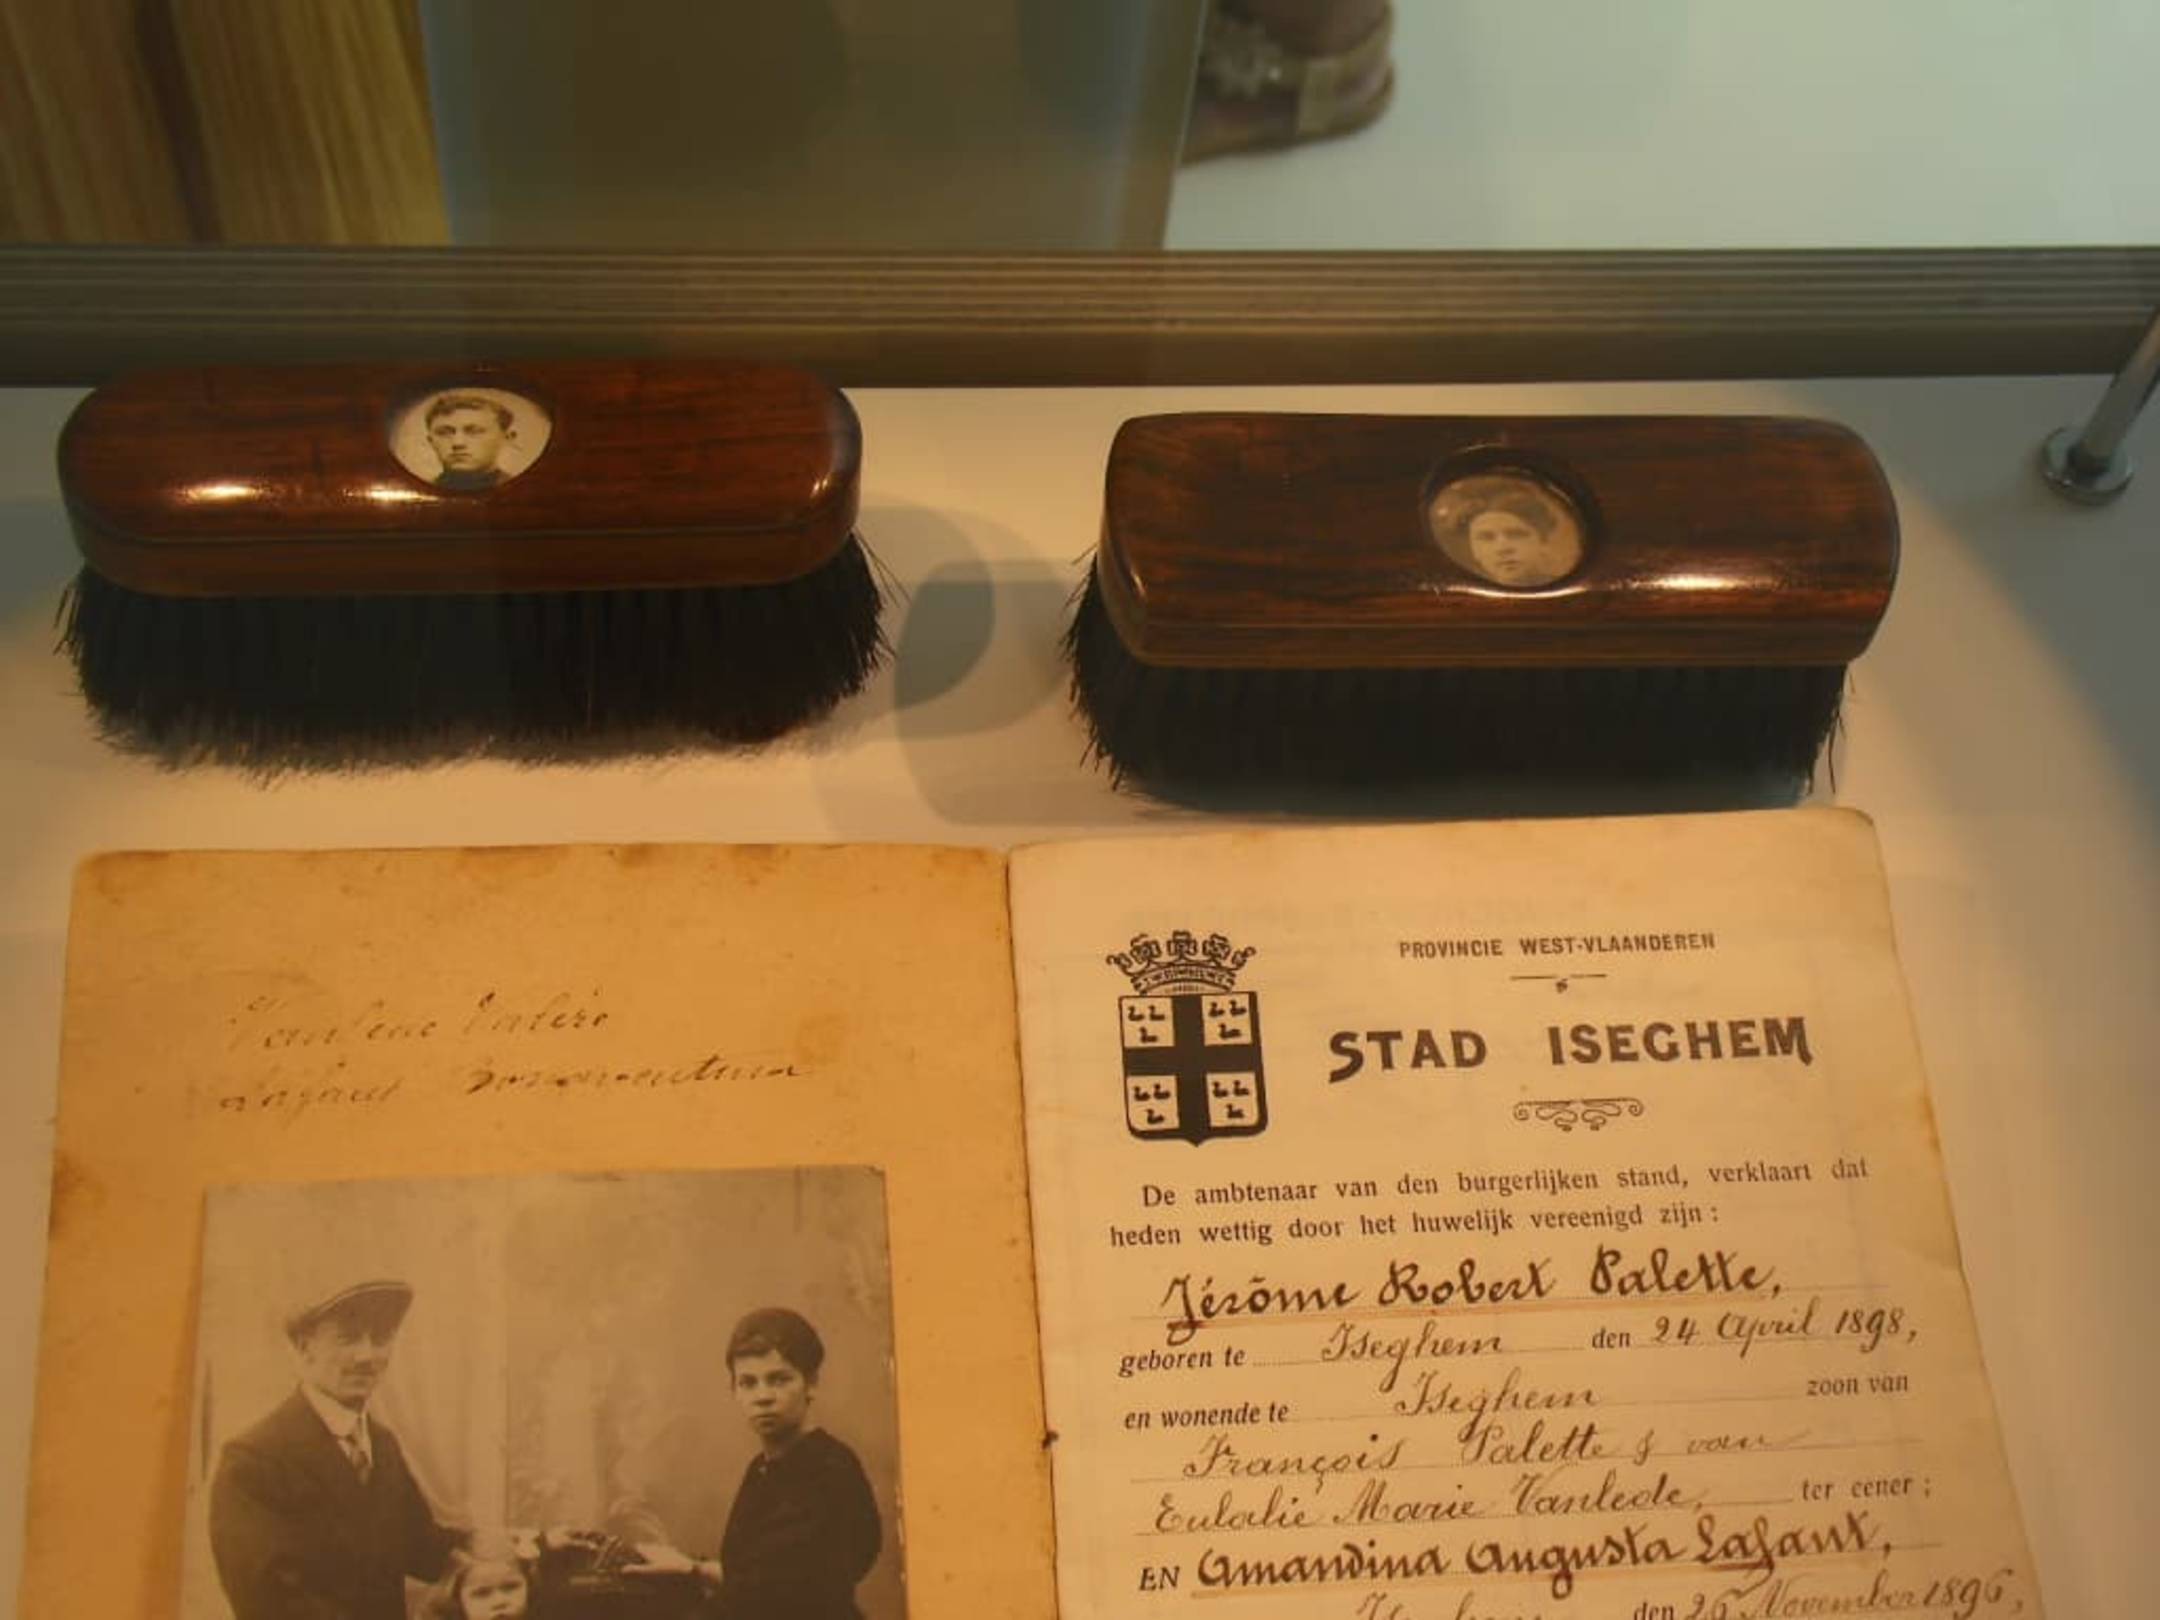 PROVINCIE WEST-VLAANDEREN
STAD ISEGHEM
De ambtenaar van den burgerlijken stand, verklaart dat
heden wettig door het huwelijk vereenigd zijn :
Jérôme Robert Palette,
geboren te Iseghem den 24 April 1898,
en wonende te Iseghem zoon van
François Palette & van
Eulalie Marie Vanlede, ter eener ;
EN Amandina Augusta Lafaut,
den 26 November 1896,